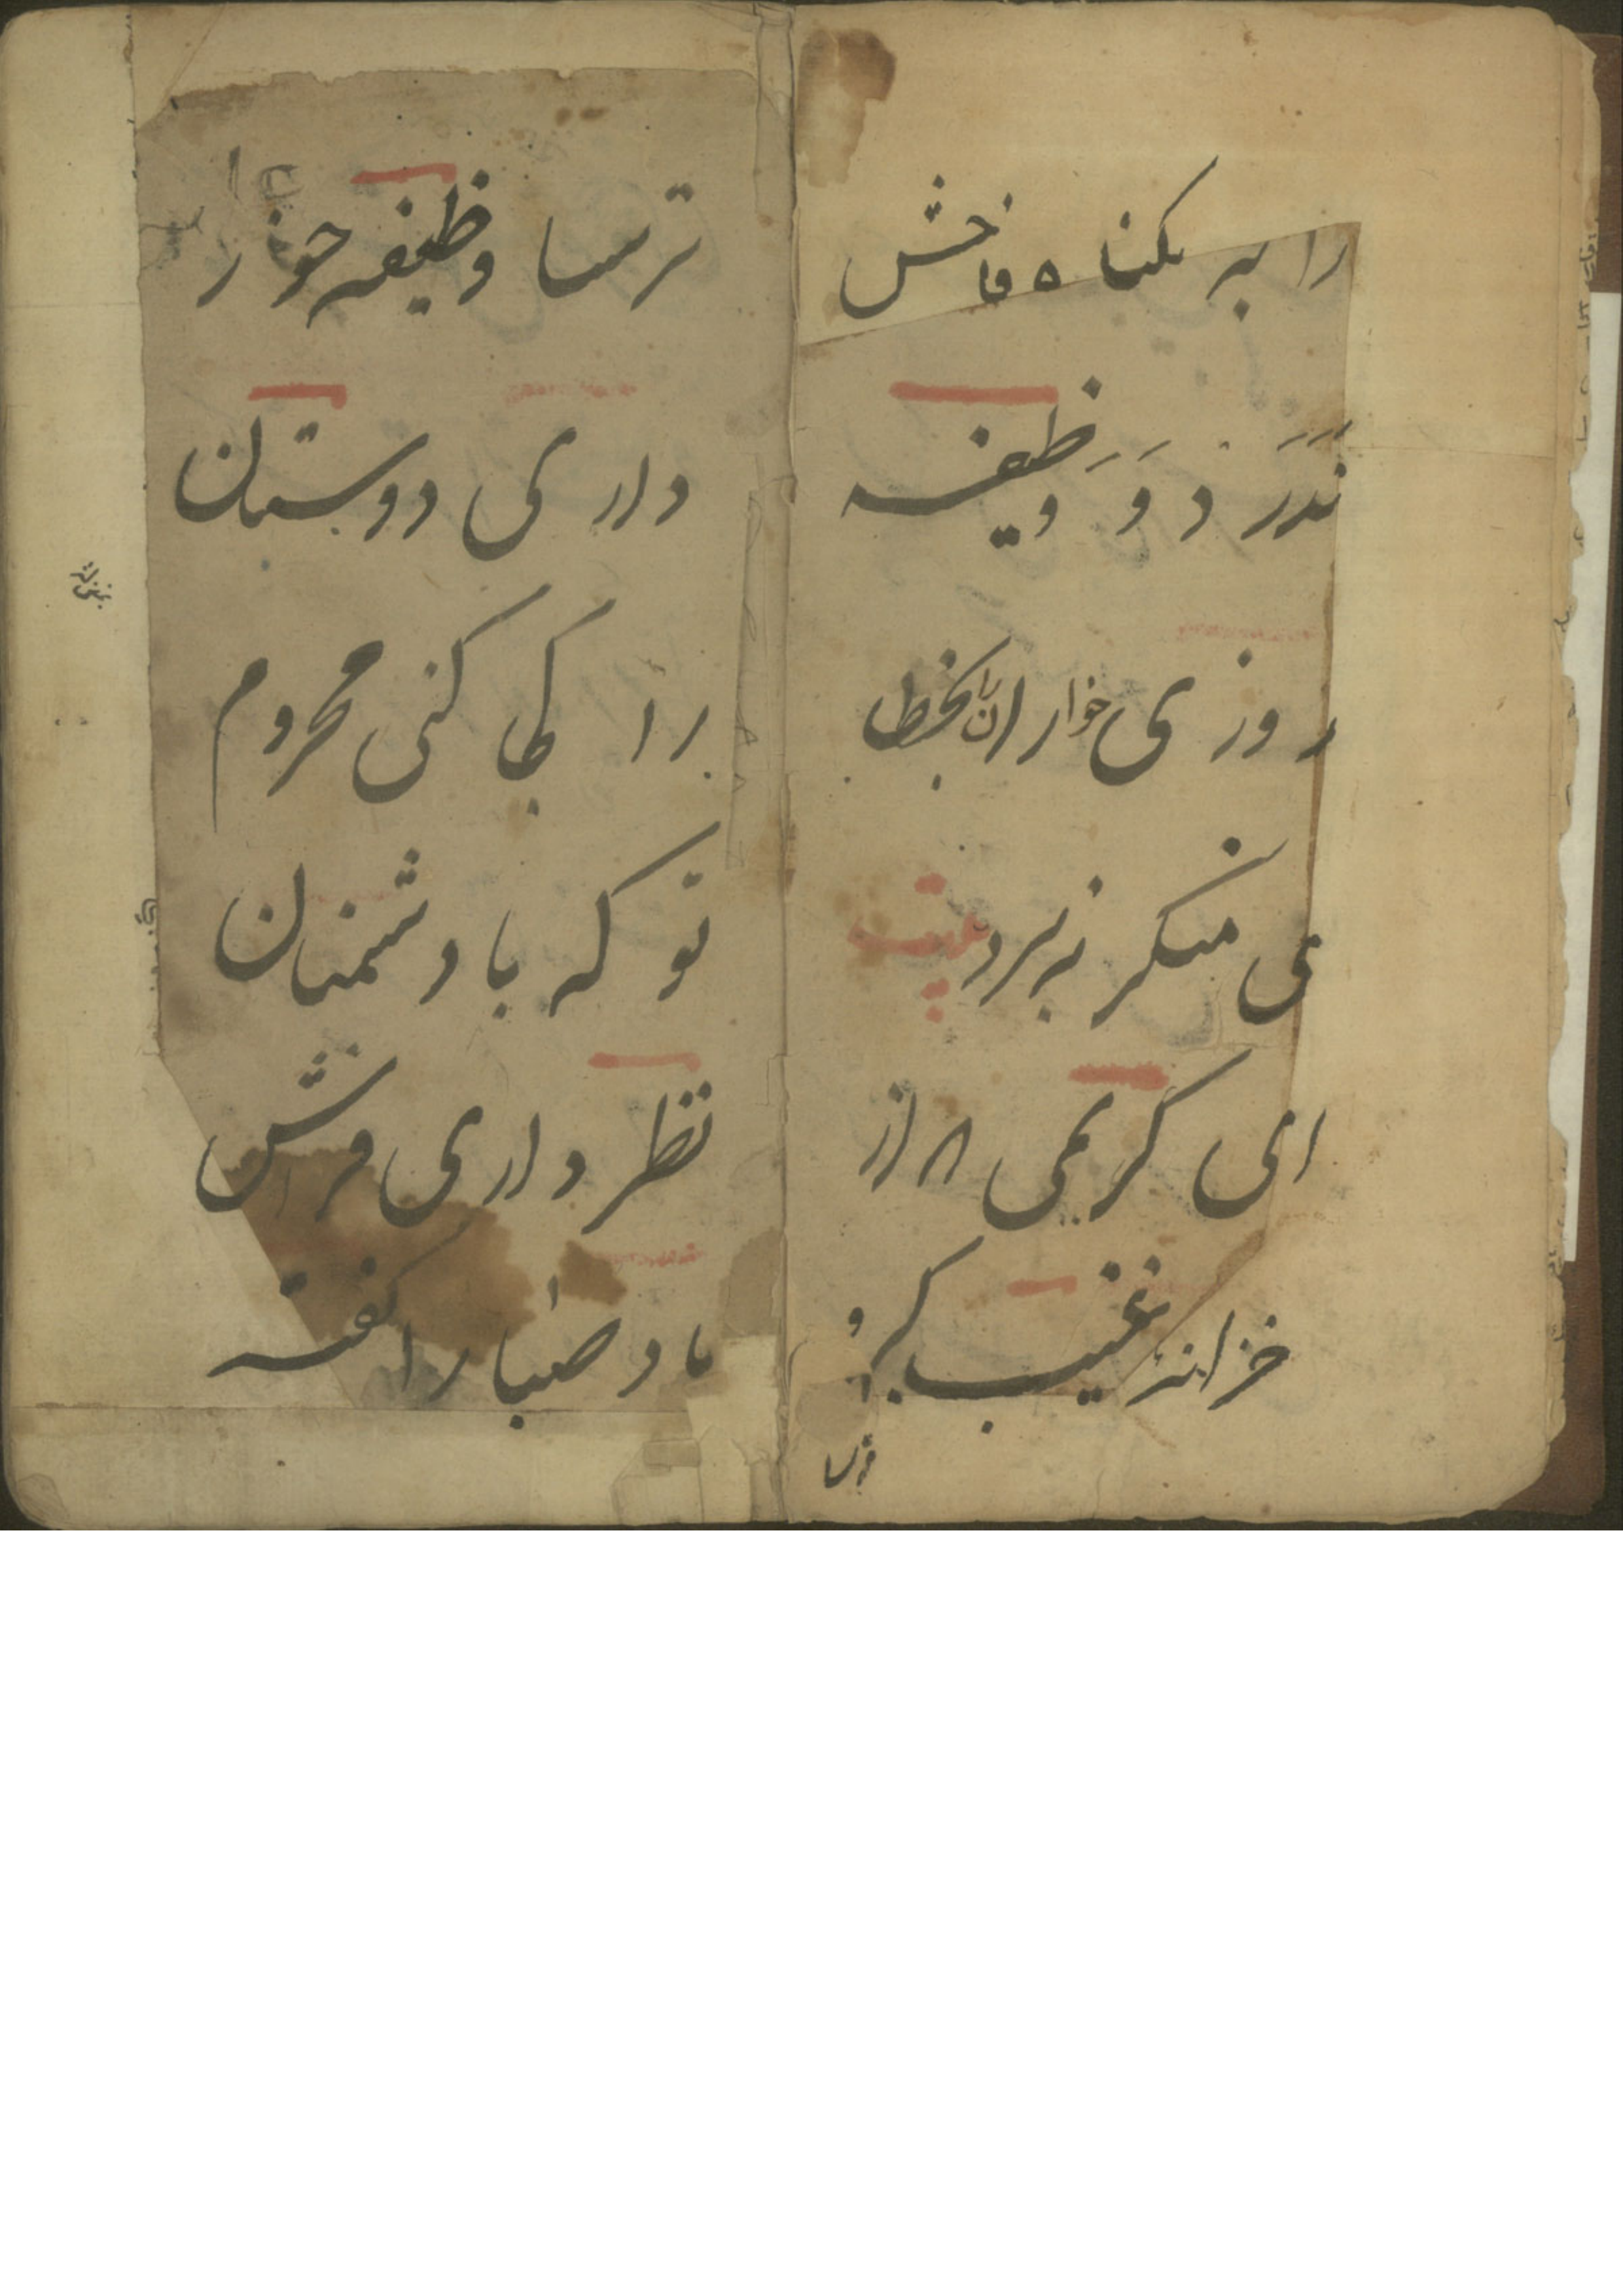 را به بکناه فاحش
ندرد و وظیفه
روزی خواران را بخطا
ی منکر نبرد بیت
ای کریمی که از
خزانهٔ غیب کبر و
ترسا
ترسا وظیفه خور
داری دوستان
را کجا کنی محروم
تو که با دشمنان
نظر داری فراش
باد صبا را کفته